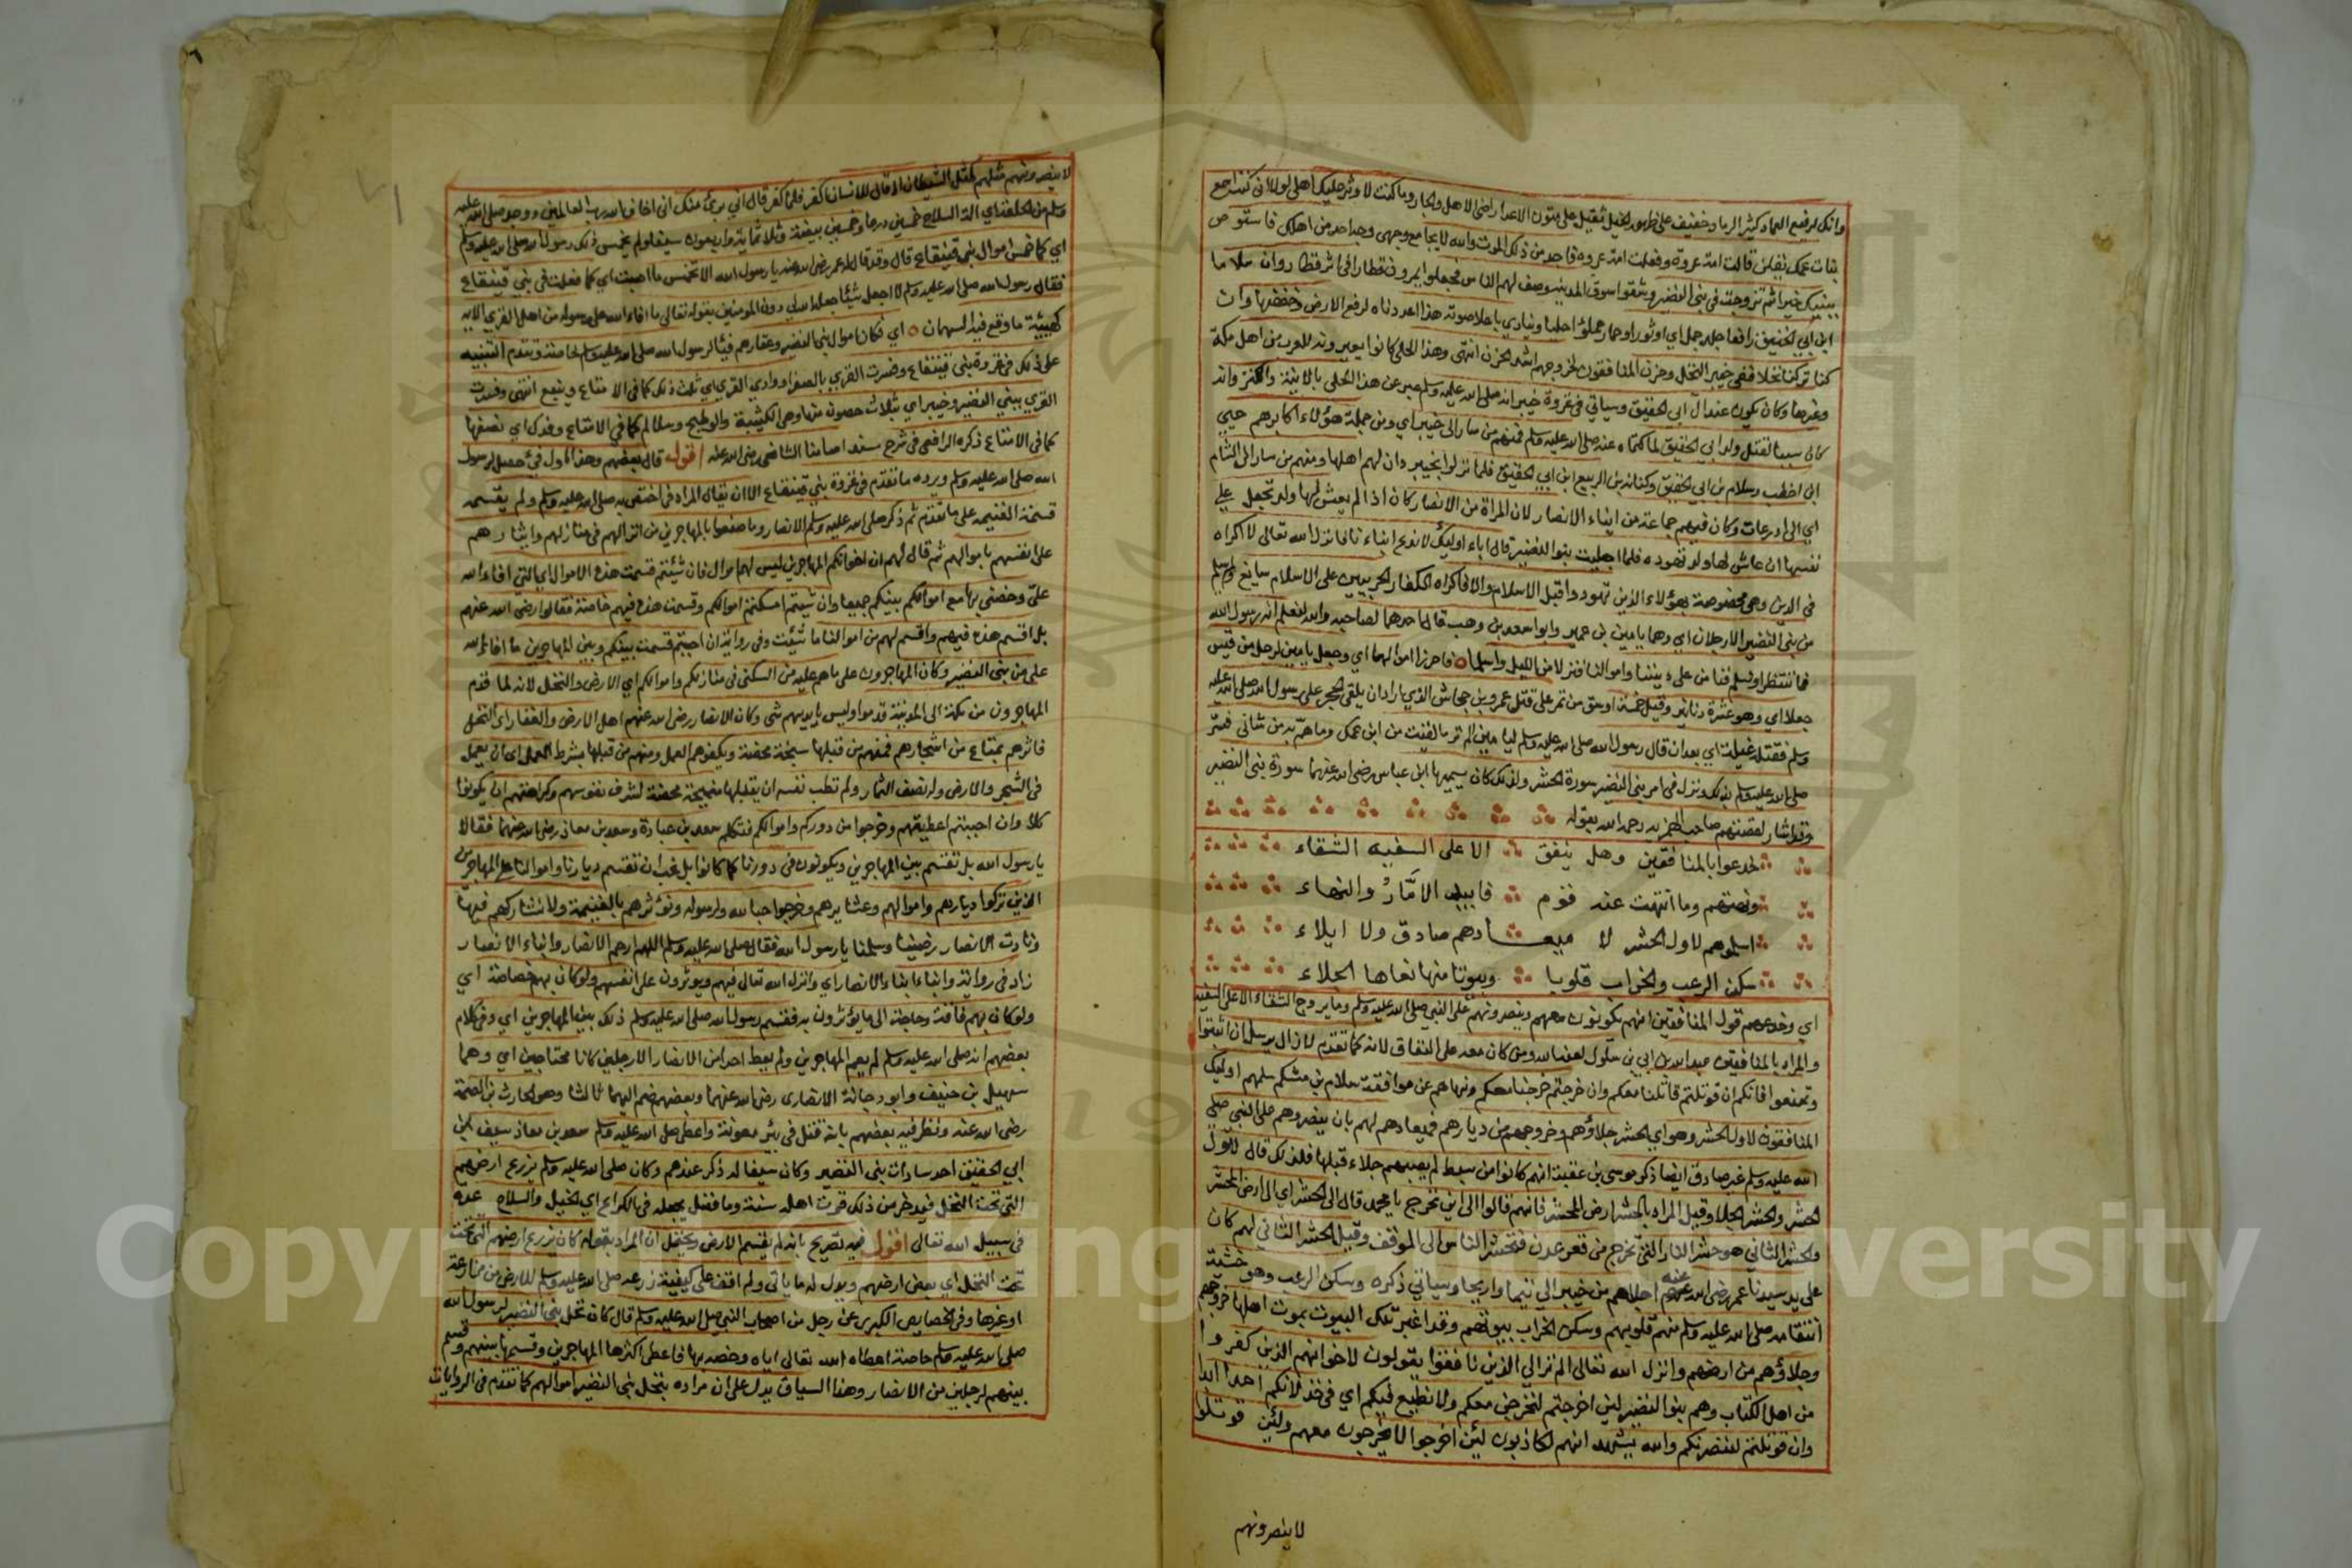 وانك لرفيع العماد كثير الرماد خفيف على ظهور الخيل ثقيل على متون الاعداء راضي الاهل والجار وما كنت لاوثر عليك اهلي لولا اني كنت اسمع
بنات عمك نقلن قالت امة عروة وفعلت امة عروة فاجد من ذلك الموت والله لا يجامع وجهي وجه احد من اهلك فاستوص
ببنيك خيرا ثم تزوجت في بني النضير وشقوا سوق المدينة وصف لهم الناس فجعلوا يمرون قطارا في اثر قطار وان سلام
ابن ابي الحقيق رافعا جلد جمل اي او ثور او حمار مملوء احليا وينادي باعلا صوته هذا اعددناه لرفع الارض وخفضها وان
كنا تركنا نخلا ففي خيبر النخل وحزن المنافقون لخروجهم اشد الحزن انتهى وهذا الحلى كانوا يعيرونه للعرب من اهل مكة
وغيرها وكان يكون عند آل ابي الحقيق وسياتي في غزوة خيبر انه صلى الله عليه وسلم عبر عن هذا الحلي بالانية والكنز وانه
كان سببا لقتل ولد ابي الحقيق لما كتماه عنه صلى الله عليه وسلم فمنهم من سار الى خيبر اي ومن جملة هؤلاء اكابرهم حيي
ابن اخطب وسلام بن ابي الحقيق وكنانة بن الربيع ابن ابي الحقيق فلما نزلوا بخيبر دان لهم اهلها ومنهم من سار الى الشام
اي الى اذرعات وكان فيهم جماعة من ابناء الانصار لان المراة من الانصار كان اذا لم يعش لها ولد تجعل على
نفسها ان عاش لها ولد تهوده فلما اجليت بنو النضير قال اباء اوليك لا ندع ابناءنا فانزل الله تعالى لا اكراه
في الدين وهي مخصوصة بهؤلاء الذين تهودوا قبل الاسلام والا فاكراه الكفار الحربيين على الاسلام سايغ ولم يسلم
من بني النضير الا رجلان اي وهما يامين بن عمير وابو اسعد بن وهب قال احدهما لصاحبه والله انك لتعلم انه رسول الله
فما ننتظر ان نسلم فنامن على دمائنا واموالنا فنزلا من الليل واسلما فاحرزا اموالهما اي وجعل يامين لرجل من قيس
جعلا اي وهو عشرة دنانير وقيل خمسة اوسق من تمر على قتل عمرو بن جحاش الذي اراد ان يلقى الحجر على رسول الله صلى الله عليه
وسلم فقتله غيلة اي بعد ان قال رسول الله صلى الله عليه وسلم ليامين الم تر ما لقيت من ابن عمك وما هم به من شاني فسر
صلى الله عليه وسلم بذلك ونزل في امر بني النضير سورة الحشر ولذلك كان يسميها ابن عباس رضي الله عنهما سورة بني النضير
وقد اشار لقصتهم صاحب الهمزية رحمه الله بقوله
خدعوا بالمنافقين وهل ينفق الا على السفيه الشقاء
ونهتهم وما انتهت عنه قوم فابيد الامّار والنهاء
اسلموهم لاول الحشر لا ميعادهم صادق ولا ايلاء
سكن الرعب والخراب قلوبا وبيوتا منها نعاها الجلاء
اي وخدعهم قول المنافقين انهم يكونون معهم وينصرونهم على النبي صلى الله عليه وسلم وما يروج الشقاء الا على السفيه
والمراد بالمنافقين عبد الله بن ابي بن سلول لعنه الله ومن كان معه على النفاق لانه كما تقدم لا زال يرسل ان اثبتوا
وتمنعوا فانكم ان قوتلتم قاتلنا معكم وان خرجتم خرجنا معكم ونهاهم عن موافقته سلام بن مشكم سلمهم اوليك
المنافقون لاول الحشر وهو اي الحشر جلاؤهم وخروجهم من ديارهم فميعادهم لهم بان ينصروهم على النبي صلى
الله عليه وسلم غير صادق ايضا ذكر موسى بن عقبة انهم كانوا من سبط لم يصبهم جلاء قبلها فلذلك قال لاول
الحشر والحشر الجلا وقيل المراد بالحشر ارض المحشر فانهم قالوا الى اين نخرج يا محمد قال الى الحشر اي الى ارض المحشر
والحشر الثاني هو حشر النار التي تخرج من قعر عدن فتحشر الناس الى الموقف وقيل الحشر الثاني لهم كان
على يد سيدنا عمر رضي الله عنه اجلاهم من خيبر الى تيما واريحا وسياتي ذكره وسكن الرعب وهو خشية
انتقامه صلى الله عليه وسلم منهم قلوبهم وسكن الخراب بيوتهم وقد اغبر تلك البيوت بموت اهلها خروجهم
وجلاؤهم من ارضهم وانزل الله تعالى الم تر الى الذين نافقوا يقولون لاخوانهم الذين كفروا
من اهل الكتاب وهم بنو النضير لئن اخرجتم لنخرجن معكم ولا نطيع فيكم اي في خذلانكم احدا ابدا
وان قوتلتم لننصرنكم والله يشهد انهم لكاذبون لئن اخرجوا لا يخرجون معهم ولئن قوتلوا
لا ينصرونهم
لا ينصرونهم مثلهم كمثل الشيطان اذ قال للانسان اكفر فلما كفر قال اني برئ منك اني اخاف الله رب العالمين ووجد صلى الله عليه
وسلم من الحلقة اي الة السلاح خمسين درعا وخمسين بيضة وثلاثماية واربعون سيفا ولم يخمس ذلك رسول الله صلى الله عليه وسلم
اي كما خمس اموال بني قينقاع قال وقد قال له عمر رضي الله عنه يا رسول الله الا تخمس ما اصبت اي كما فعلت في بني قينقاع
فقال رسول الله صلى الله عليه وسلم لا اجعل شيئا جعله الله لي دون المومنين بقوله تعالى ما افاء الله على رسوله من اهل القرى الاية
كهيئة ما وقع فيه السهمان اي فكان اموال بني النضير وعقارهم فيئا لرسول الله صلى الله عليه وسلم خاصة وتقدم التنبيه
على ذلك في غزوة بني قينقاع وفسرت القرى بالصفرا ووادي القرى اي ثلث ذلك كما في الامتاع وينبع انتهى وفسرت
القرى ببني النضير وخيبر اي بثلاث حصون منها وهي الكثيبة والوطيح وسلالم كما في الامتاع وفدك اي نصفها
كما في الامتاع ذكره الرافعي في شرح مسند امامنا الشافعي رضي الله عنه اقول قال بعضهم وهذا اول فئ حصل لرسول
الله صلى الله عليه وسلم ويرده ما تقدم في غزوة بني قينقاع الا ان يقال المراد فئ اختص به صلى الله عليه وسلم ولم يقسمه
قسمة الغنيمة على ما تقدم ثم ذكر صلى الله عليه وسلم الانصار وما صنعوا بالمهاجرين من انزالهم في منازلهم وايثارهم
على انفسهم باموالهم ثم قال لهم ان اخوانكم المهاجرين ليس لهم اموال فان شيئتم قسمت هذه الاموال اي التي افاء الله
علىّ وخصني بها مع اموالكم بينكم جميعا وان شيتم امسكتم اموالكم وقسمت هذه فيهم خاصة فقالوا رضي الله عنهم
بل اقسم هذه فيهم واقسم لهم من اموالنا ما شئت وفي رواية ان احببتم قسمت بينكم وبين المهاجرين ما افاء الله
على من بني النضير وكان المهاجرون على ما هم عليه من السكنى في منازلكم واموالكم اي الارض والنخل لانه لما قدم
المهاجرون من مكة الى المدينة قدموا وليس بايديهم شئ وكان الانصار رضي الله عنهم اهل الارض والعقار اي النخل
فاثرهم بمتاع من اشجارهم فمنهم من قبلها منيحة محضة ويكفوهم العمل ومنهم من قبلها بشرط العمل اي ان يعمل
في الشجر والارض وله نصف الثمار ولم تطب نفسه ان يقبلها منيحة محضة لشرف نفوسهم وكراهتهم ان يكونوا
كلا وان احببتم اعطيتهم وخرجوا من دوركم واموالكم فتكلم سعد بن عبادة وسعد بن معاذ رضي الله عنهما فقالا
يا رسول الله بل تقسم بين المهاجرين ويكونون في دورنا كما كانوا بل نحب ان تقسم ديارنا واموالنا على المهاجرين
الذين تركوا ديارهم واموالهم وعشايرهم وخرجوا حبا لله ولرسوله ونؤثرهم بالغنيمة ولا نشاركهم فيها
ونادت الانصار رضينا وسلمنا يا رسول الله فقال صلى الله عليه وسلم اللهم ارحم الانصار وابناء الانصار
زاد في رواية وابناء ابناء الانصار اي وانزل الله تعالى فيهم ويوثرون على انفسهم ولو كان بهم خصاصة اي
ولو كان بهم فاقة وحاجة الى ما يؤثرون به فقسم رسول الله صلى الله عليه وسلم ذلك بين المهاجرين اي وفي كلام
بعضهم انه صلى الله عليه وسلم لم يعم المهاجرين ولم يعط احدا من الانصار الا رجلين كانا محتاجين اي وهما
سهيل بن حنيف وابو دجانة الانصاري رضي الله عنهما وبعضهم ضم اليهما ثالثا وهو الحارث بن الصمة
رضي الله عنه ونظر فيه بعضهم بانه قتل في بئر معونة واعطى صلى الله عليه وسلم سعد بن معاذ سيف ابن
ابي الحقيق احد سادات بني النضير وكان سيفا له ذكر عندهم وكان صلى الله عليه وسلم يزرع ارضهم
التي تحت النخل فيدخر من ذلك قوت اهله سنة وما فضل يجعله في الكراع اي الخيل والسلاح عدة
في سبيل الله تعالى اقول فيه تصريح بانه لم يقسم الارض ويحتمل ان المراد بقوله كان يزرع ارضهم التي تحت
تحت النخل اي بعض ارضهم ويدل له ما ياتي ولم اقف على كيفية زرعه صلى الله عليه وسلم للارض من مزارعة
او غيرها وفي الخصايص الكبرى عن رجل من اصحاب النبي صلى الله عليه وسلم قال كان نخل بني النضير لرسول الله
صلى الله عليه وسلم خاصة اعطاه الله تعالى اياه وخصه بها فاعطى اكثرها المهاجرين وقسمها بينهم وقسم
بينهم لرجلين من الانصار وهذا السياق يدل على ان مراده بنخل بني النضير اموالهم كما تقدم في الروايات
Copyright © King Saud University